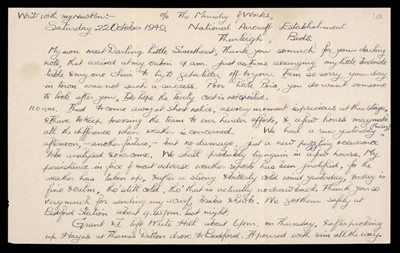 Write with my new Pen:- c/o The Ministry of Works,
Saturday 22 October 1949, National Aircraft Establishment
Thurleigh, Beds.
My own most Darling Little Sweetheart, Thank you so much for your darling
note, that arrived at my cabin 9 am. Just as I was arranging my little bedside
table & my one chair to try & get a letter off to you. I am so sorry your day
in town was not such a success. Poor little Trio, you do want someone
to look after you, I do hope the lovely coat is not spoiled.
10 am. Had to come away at short notice, as every moment is precious at this stage,
& I have to keep pressing the team to ever harder efforts, & a few hours may make
all the difference when weather is concerned. We had a run yesterday
afternoon, — another failure, — but no damage, just a new puzzling occurrence
to be analysed & overcome. We shall probably try again in a few hours. My
persistence in face of most adverse weather reports has been justified, for the
weather has taken up, & after a stormy & bitterly cold world yesterday, today is
fine & calm, tho' still cold, tho' the sun is actually now shining back. Thank you so
very much for sending my scarf, books & hat. We got them safely at
Bedford Station about 9.45 pm. last night.
Grant & I left White Hill about 6 pm. on Thursday, & after picking
up Hayes at Thames Ditton drove to Bedford. It poured with rain all the way